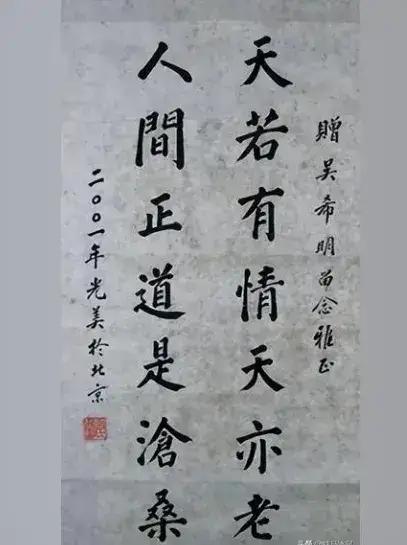 贈吴希明留念雅正
天若有情天亦老
人間正道是滄桑
二〇〇一年光美於北京